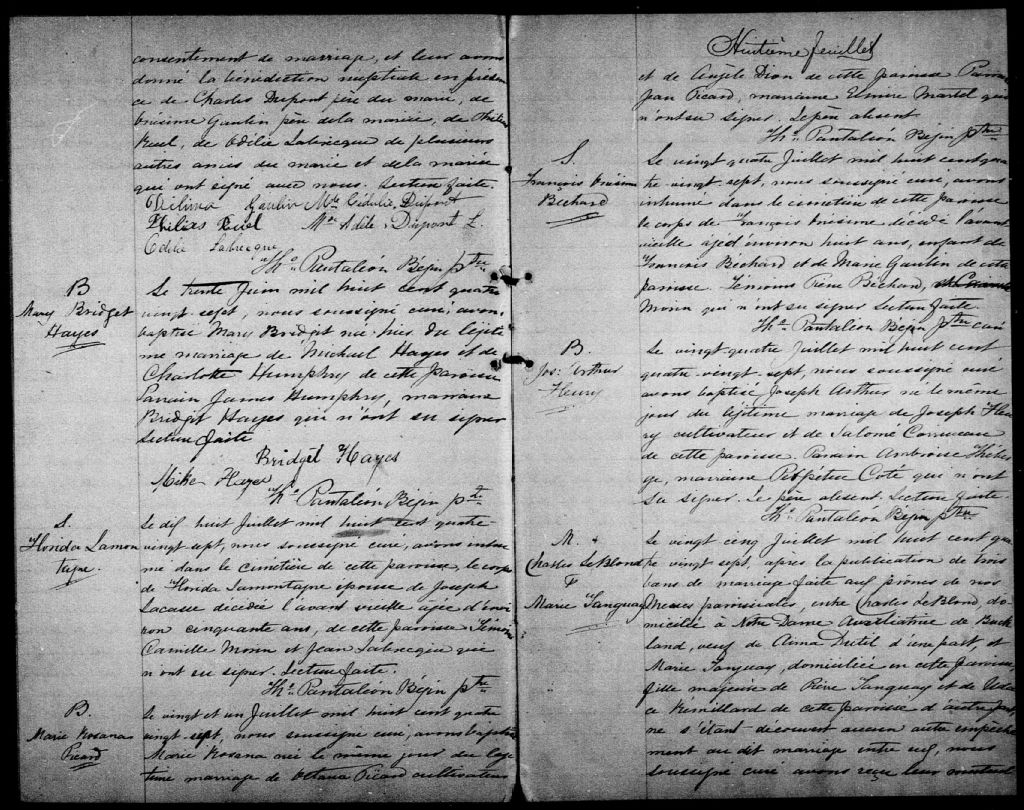 consentement de mariage, et leur avons
donné la bénédiction nuptiale en présen
ce de Charles Dupont père du marié, de
Onésime Gaulin père de la mariée, de Philéas
Ruel, de Odélie Labrecque de plusieurs
autres amis du marié et de la mariée
qui ont signé avec nous. Lecture faite.
Gaulin Dupont
Philéas Ruel Adèle Dupont
Odélie Labrecque
Ths Pantaléon Bégin ptre
B
Mary Bridget
Hayes
Le trente Juin mil huit cent quatre
vingt sept, nous soussigné curé, avons
baptisé Mary Bridget née hier du légiti
me mariage de Michael Hayes et de
Charlotte Humphry de cette paroisse
Parrain James Humphry, marraine
Bridget Hayes qui n'ont su signer
Lecture faite
Bridget Hayes
Mike Hayes
Ths Pantaléon Bégin ptre
S.
Florida Lamon
tagne.
Le dix huit Juillet mil huit cent quatre-
vingt sept, nous soussigné curé, avons inhu
mé dans le cimetière de cette paroisse le corps
de Florida Lamontagne épouse de Joseph
Lacasse décédée l'avant veille agée d'envi
ron cinquante ans, de cette paroisse Témoins
Camille Morin et Jean Labrecque qui
n'ont su signer. Lecture faite.
Ths Pantaléon Bégin ptre
B.
Marie Rosana
Picard
Le vingt et un Juillet mil huit cent quatre
vingt sept, nous soussigné curé, avons baptisé
Marie Rosana née le même jour du légi
time mariage de Picard cultivateur
Huitième feuillet
et de Angèle Dion de cette paroisse Parrain
Jean Picard, marraine Elmire Martel qui
n'ont su signer. Le père absent
Ths Pantaléon Bégin ptre
S.
François Onésime
Bechard
Le vingt quatre Juillet mil huit cent qua
tre vingt sept, nous soussigné curé, avons
inhumé dans le cimetière de cette paroisse
le corps de François Onésime décédé l'avant
veille agé d'environ huit ans, enfant de
François Bechard et de Marie Gaulin de cette
paroisse. Témoins Pierre Béchard,
Morin qui n'ont su signer Lecture faite.
Ths Pantaléon Bégin ptre curé
B.
Jos. Arthur
Fleury
Le vingt-quatre Juillet mil huit cent
quatre-vingt-sept, nous soussigné curé
avons baptisé Joseph Arthur né le même
jour du légitime mariage de Joseph Fleu
ry cultivateur et de Salomé Corriveau
de cette paroisse. Parrain Ambroise Théber
ge, marraine Perpétue Coté qui n'ont
su signer. Le père absent. Lecture faite.
Ths Pantaléon Bégin ptre
M.
Charles LeBlond
&
Marie Tanguay
Le vingt cinq Juillet mil huit cent qua
tre vingt sept, après la publication de trois
bans de mariage faite aux prônes de nos
Messes paroissiales, entre Charles LeBlond, do
micilié à Notre Dame Auxiliatrice de Buck
land, veuf de Anna Dutil d'une part, et
Marie Tanguay, domiciliée en cette paroisse
fille majeure de Pierre Tanguay et de
ce Remillard de cette paroisse d'autre part,
ne s'étant découvert aucun autre empêche
ment au dit mariage entre eux, nous
soussigné curé avons reçu leur mutuel